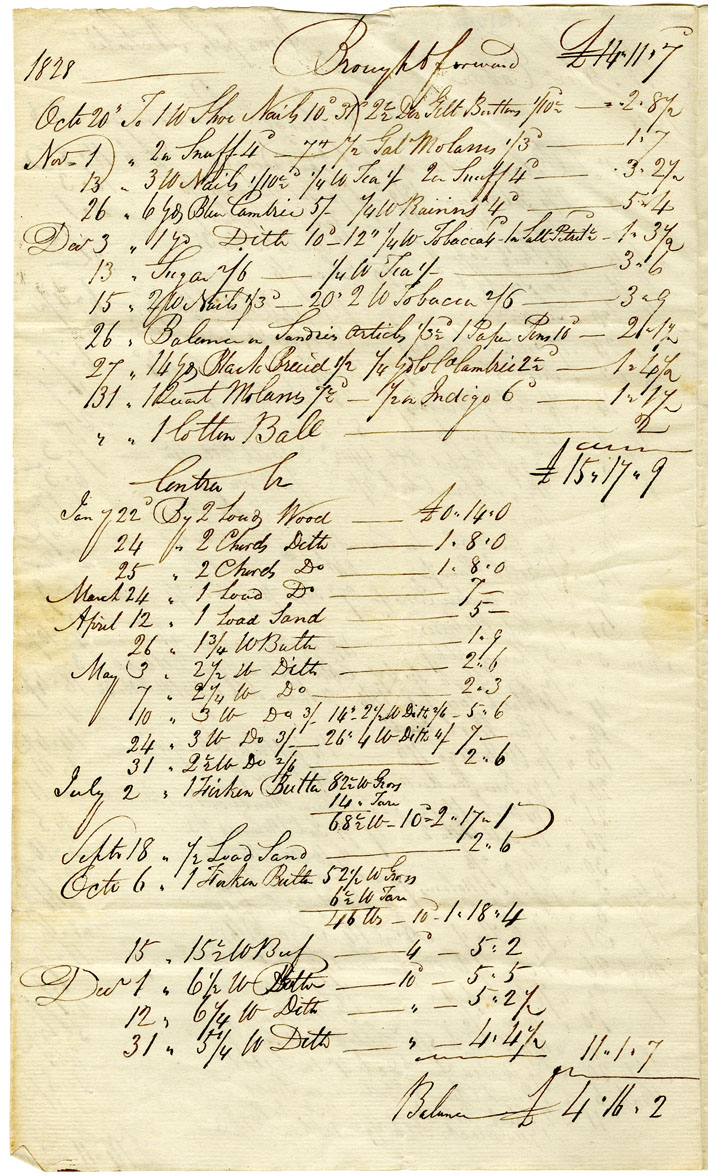 1828 Brought forward £14"11"7
Octr 20d To 1 W Shoe Nails 10d 31) 2½ Doz Gilt Buttons 1/10½ — = 2"8½
Novr 1) " 2oz Snuff 4d — 7th ½ Gal Molasses 1/3d — 1"7
13 " 3 W Nails 1/10½d ¼ W Tea 1/ 2oz Snuff 4d — 3"2½
26 " 6 yds Blue Cambric 5/ ¼ W Raisins 4d — 5"4
Decr 3 " 1 yd Ditto 10d — 12th ¼ W Tobacco 4d 1oz Salt Petre — 1"3½
13 " Sugar 2/6 — ¼ W Tea 1/ — 3"6
15 " 2 W Nails 1/3d — 20th 2 W Tobacco 2/6 — 3"9
26 " Balance on Sundries Articles 1/3½ 1 Paper Pins 10d — 2"1½
27 " 14 yds Black Braid 1/2 ¼ yd Cambric 2½d — 1"4½
31 " 1 Quart Molasses 7½d — ½ oz Indigo 6d — 1"1½
" " 1 Cotton Ball — 2
£15"17"9
Contra Cr
Jany 22d By 2 Loads Wood — £0"14"0
24 " 2 Chords Ditto — 1"8"0
25 " 2 Chords Do — 1"8"0
March 24 " 1 Load Do — 7—
April 12 " 1 Load Sand — 5—
26 " 1¾ W Buttr — 1"9
May 3 " 2½ W Ditto — 2"6
7 " 2¼ W Do — 2"3
10 " 3 W Do 3/ 14th 2½ W Ditto 2/6 — 5"6
24 " 3 W Do 3/ — 26th 4 W Ditto 4/ 7—
31 " 2½ W Do 2/6 — 2"6
July 2 " 1 Firken Butter 82½ W Gross
14 " Tare
68½ W — 10d — 2"17"1
Septr 18 " ½ Load Sand — 2"6
Octr 6 " 1 Firken Butter 52½ W Gross
6½ W Tare
46 lbs — 10d — 1"18"4
15 " 15½ W Beef — 4d — 5"2
Decr 1 " 6½ W Butter — 10d — 5"5
12 " 6¼ W Ditto — " — 5"2½
31 " 5¼ W Ditto — " — 4"4½ 11"1"7
Balance £4"16"2